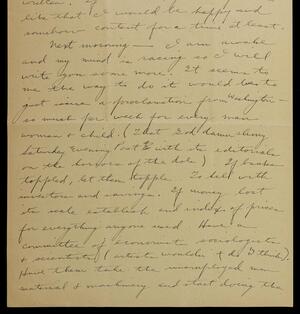 written. If
like that I would be happy and
somehow content for a time at least.
Next morning — I am awake
and my mind is racing so I will
write you some more. It seems to
me the way to do it would be to
just issue a proclamation from Washington —
so much per week for every man
woman & child. (That God damn
Saturday Evening Post with its editorials
on the horrors of the dole.) If banks
toppled, let them topple. To hell with
investors and savings. If money lost
its scale establish and index of prices
for everything anyone used. Have a
committee of economist sociologists
& scientists (artists wouldn't do I think).
Have them take the unemployed men
material & machinery and start doing the